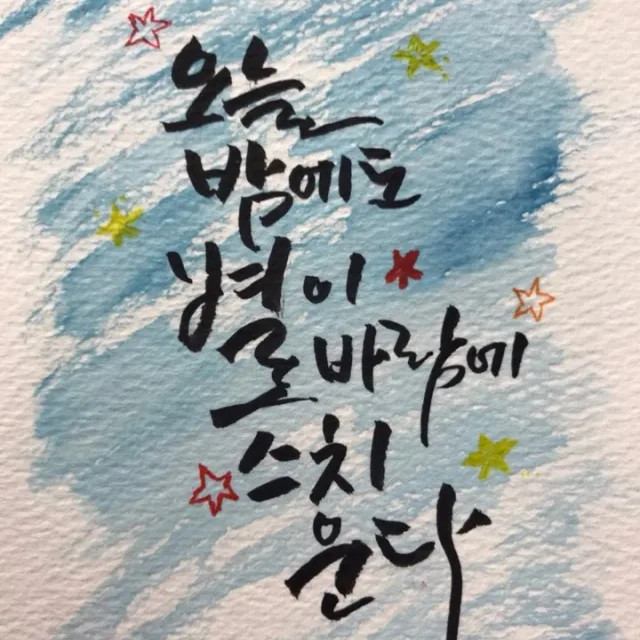 오늘
밤에도
별이
바람에
스치
운다